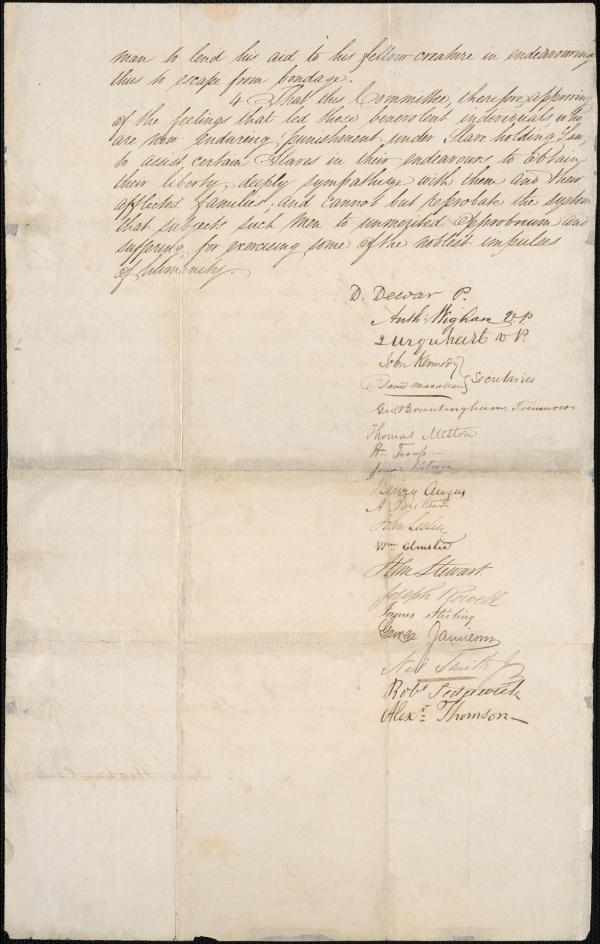 man to lend his aid to his fellow creature in endeavouring
thus to escape from bondage.
4 That this Committee, therefore, approving
of the feelings that led those benevolent individuals who
are now enduring punishment under Slave holding Law,
to assist certain Slaves in their endeavours to obtain
their liberty, deeply sympathize with them and their
afflicted families; and cannot but reprobate the system
that subjects such men to unmerited opprobrium and
suffering for exercising some of the noblest impulses
of humanity.
D. Dewar P.
Anth: Wigham V.P.
Urquhart V P.
John Kennedy
David Macallan } Secretaries
Geo: Brantingham, Treasurer
Thomas Meston
Wilson
Henry Angus
A
John Leslie
Wm Elmslie
John Stewart
Joseph Rowell
James Stirling
George Jamieson
Neil Smith Jr
Robt Sedgewick
Alexr Thomson